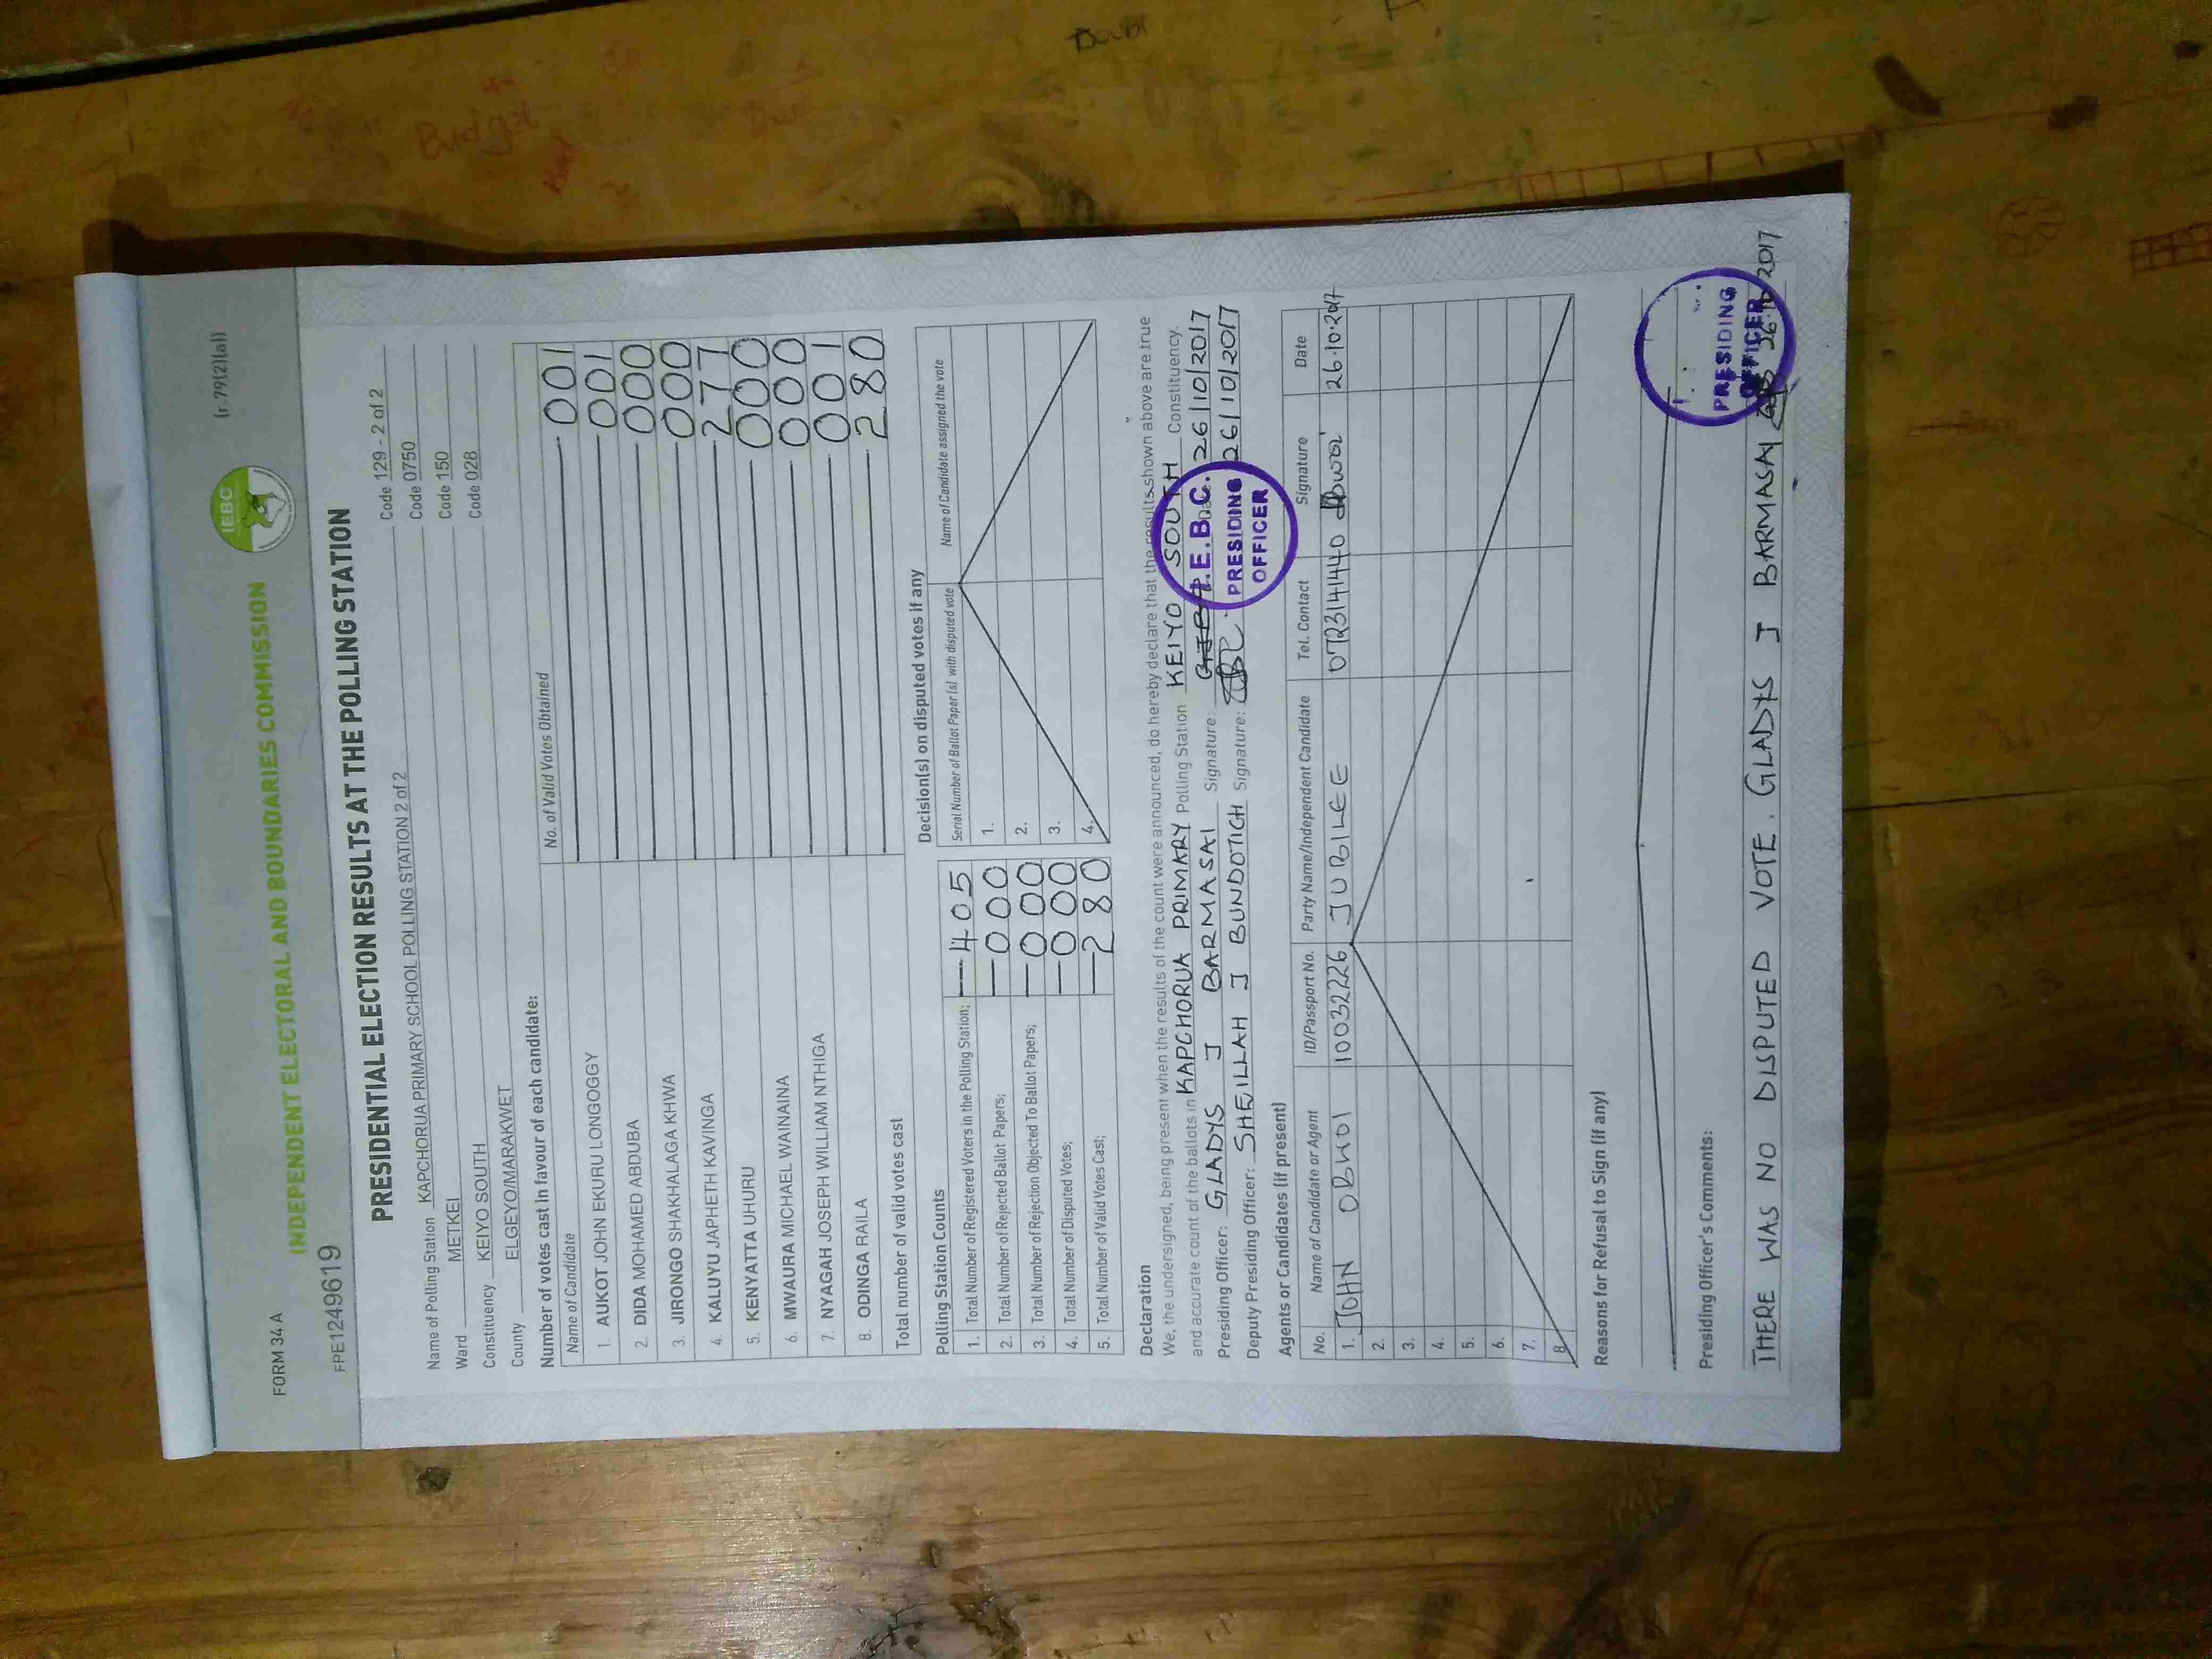 FORM 34 A
(r.79(2)(a))
IEBC
INDEPENDENT ELECTORAL AND BOUNDARIES COMMISSION
FPE1249619
PRESIDENTIAL ELECTION RESULTS AT THE POLLING STATION
Name of Polling Station KAPCHORUA PRIMARY SCHOOL POLLING STATION 2 of 2 Code 129 - 2 of 2
Ward METKEI Code 0750
Constituency KEIYO SOUTH Code 150
County ELGEYO/MARAKWET Code 028
Number of votes cast in favour of each candidate:
Name of Candidate No. of Valid Votes Obtained
1. AUKOT JOHN EKURU LONGOGGY 001
2. DIDA MOHAMED ABDUBA 001
3. JIRONGO SHAKHALAGA KHWA 000
4. KALUYU JAPHETH KAVINGA 000
5. KENYATTA UHURU 277
6. MWAURA MICHAEL WAINAINA 000
7. NYAGAH JOSEPH WILLIAM NTHIGA 000
8. ODINGA RAILA 001
Total number of valid votes cast 280
Polling Station Counts
1. Total Number of Registered Voters in the Polling Station; 405
2. Total Number of Rejected Ballot Papers; 000
3. Total Number of Rejection Objected To Ballot Papers; 000
4. Total Number of Disputed Votes; 000
5. Total Number of Valid Votes Cast; 280
Decision(s) on disputed votes if any
Serial Number of Ballot Paper(s) with disputed vote Name of Candidate assigned the vote
1.
2.
3.
4.
Declaration
We, the undersigned, being present when the results of the count were announced, do hereby declare that the results shown above are true
and accurate count of the ballots in KAPCHORUA PRIMARY Polling Station KEIYO SOUTH Constituency.
Presiding Officer: GLADYS J BARMASAI Signature: 26/10/2017
Deputy Presiding Officer: SHEILLAH J BUNDOTICH Signature: 26/10/2017
I.E.B.C.
PRESIDING
OFFICER
Agents or Candidates (if present)
No. Name of Candidate or Agent ID/Passport No. Party Name/Independent Candidate Tel. Contact Signature Date
1. JOHN OBWOI 10032226 JUBILEE 0723141440 26.10.2017
2.
3.
4.
5.
6.
7.
8.
Reasons for Refusal to Sign (if any)
Presiding Officer's Comments:
THERE WAS NO DISPUTED VOTE. GLADYS J BARMASAI 26.10.2017
PRESIDING
OFFICER
Budget